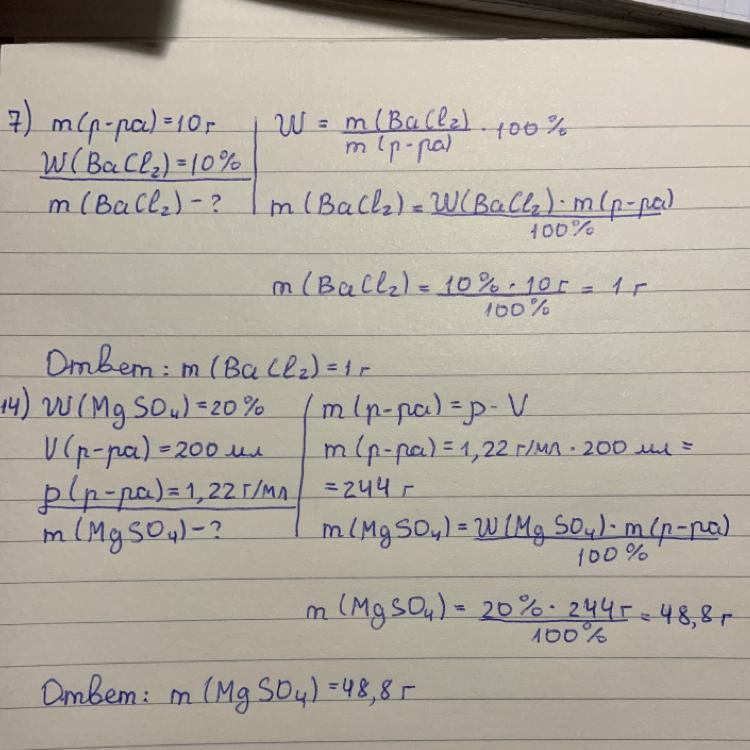 7) m(р-ра)=10г
W(BaCl₂)=10%
m(BaCl₂)-?
W = m(BaCl₂) / m(р-ра) · 100%
m(BaCl₂) = W(BaCl₂)·m(р-ра) / 100%
m(BaCl₂) = 10%·10г / 100% = 1г
Ответ: m(BaCl₂)=1г
14) W(MgSO₄)=20%
V(р-ра)=200 мл
p(р-ра)=1,22г/мл
m(MgSO₄)-?
m(р-ра)=p·V
m(р-ра)=1,22г/мл·200 мл=
=244г
m(MgSO₄)=W(MgSO₄)·m(р-ра) / 100%
m(MgSO₄)= 20%·244г / 100% = 48,8г
Ответ: m(MgSO₄)=48,8г